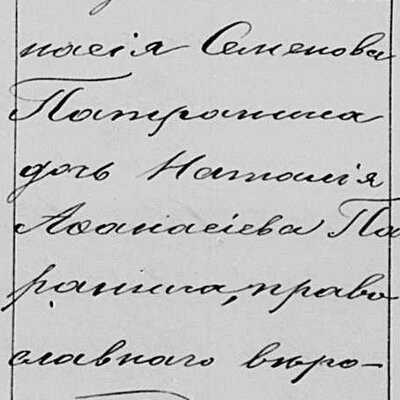 насія Семенова
Патрашина
дочь Наталія
Аѳанасіева Па
рашина, право
славнаго вѣро-